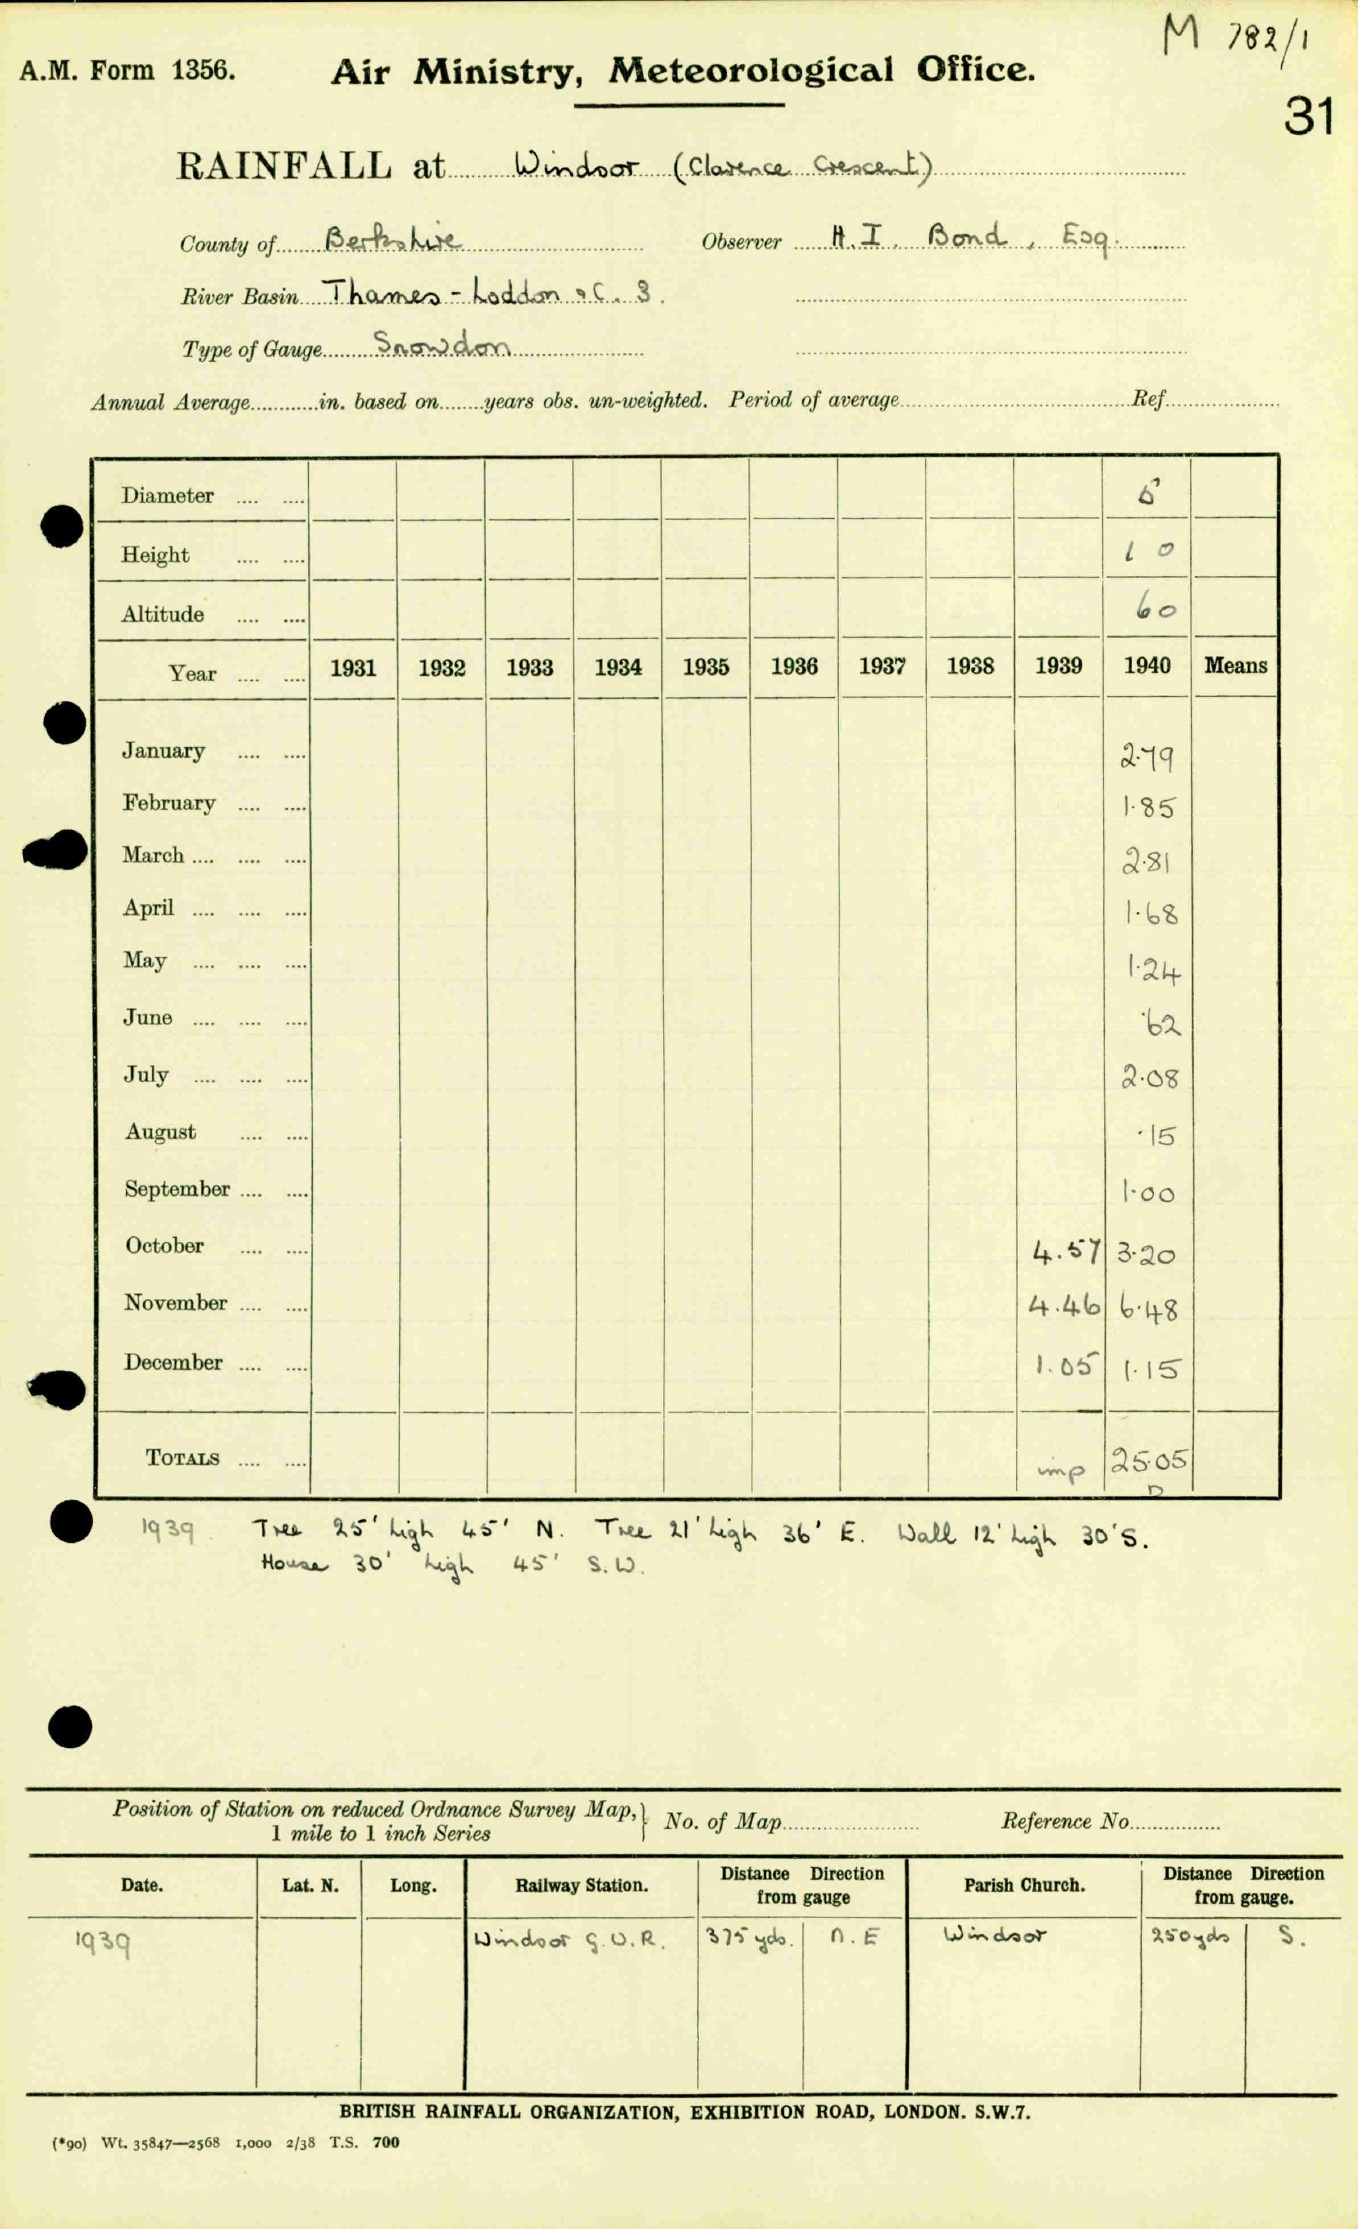 M 782/1
A.M. Form 1356. Air Ministry, Meteorological Office.
31
RAINFALL at Windsor (Clarence Crescent)
County of Berkshire Observer H. I. Bond, Esq.
River Basin Thames - Loddon &C. 3.
Type of Gauge Snowdon
Annual Average in. based on years obs. un-weighted. Period of average Ref.
Diameter .... .... 5
Height .... .... 1 0
Altitude .... .... 60
Year .... .... 1931 1932 1933 1934 1935 1936 1937 1938 1939 1940 Means
January .... .... 2.79
February .... .... 1.85
March .... .... .... 2.81
April .... .... .... 1.68
May .... .... .... 1.24
June .... .... .... .62
July .... .... .... 2.08
August .... .... .15
September .... .... 1.00
October .... .... 4.57 3.20
November .... .... 4.46 6.48
December .... .... 1.05 1.15
TOTALS .... .... imp 25.05
D
1939 Tree 25' high 45' N. Tree 21' high 36' E. Wall 12' high 30' S.
House 30' high 45' S.W.
Position of Station on reduced Ordnance Survey Map,} No. of Map Reference No.
1 mile to 1 inch Series
Date. Lat. N. Long. Railway Station. Distance Direction from gauge Parish Church. Distance Direction from gauge.
1939 Windsor G.W.R. 375 yds. N.E Windsor 250yds S.
BRITISH RAINFALL ORGANIZATION, EXHIBITION ROAD, LONDON. S.W.7.
(*90) Wt. 35847—2568 1,000 2/38 T.S. 700